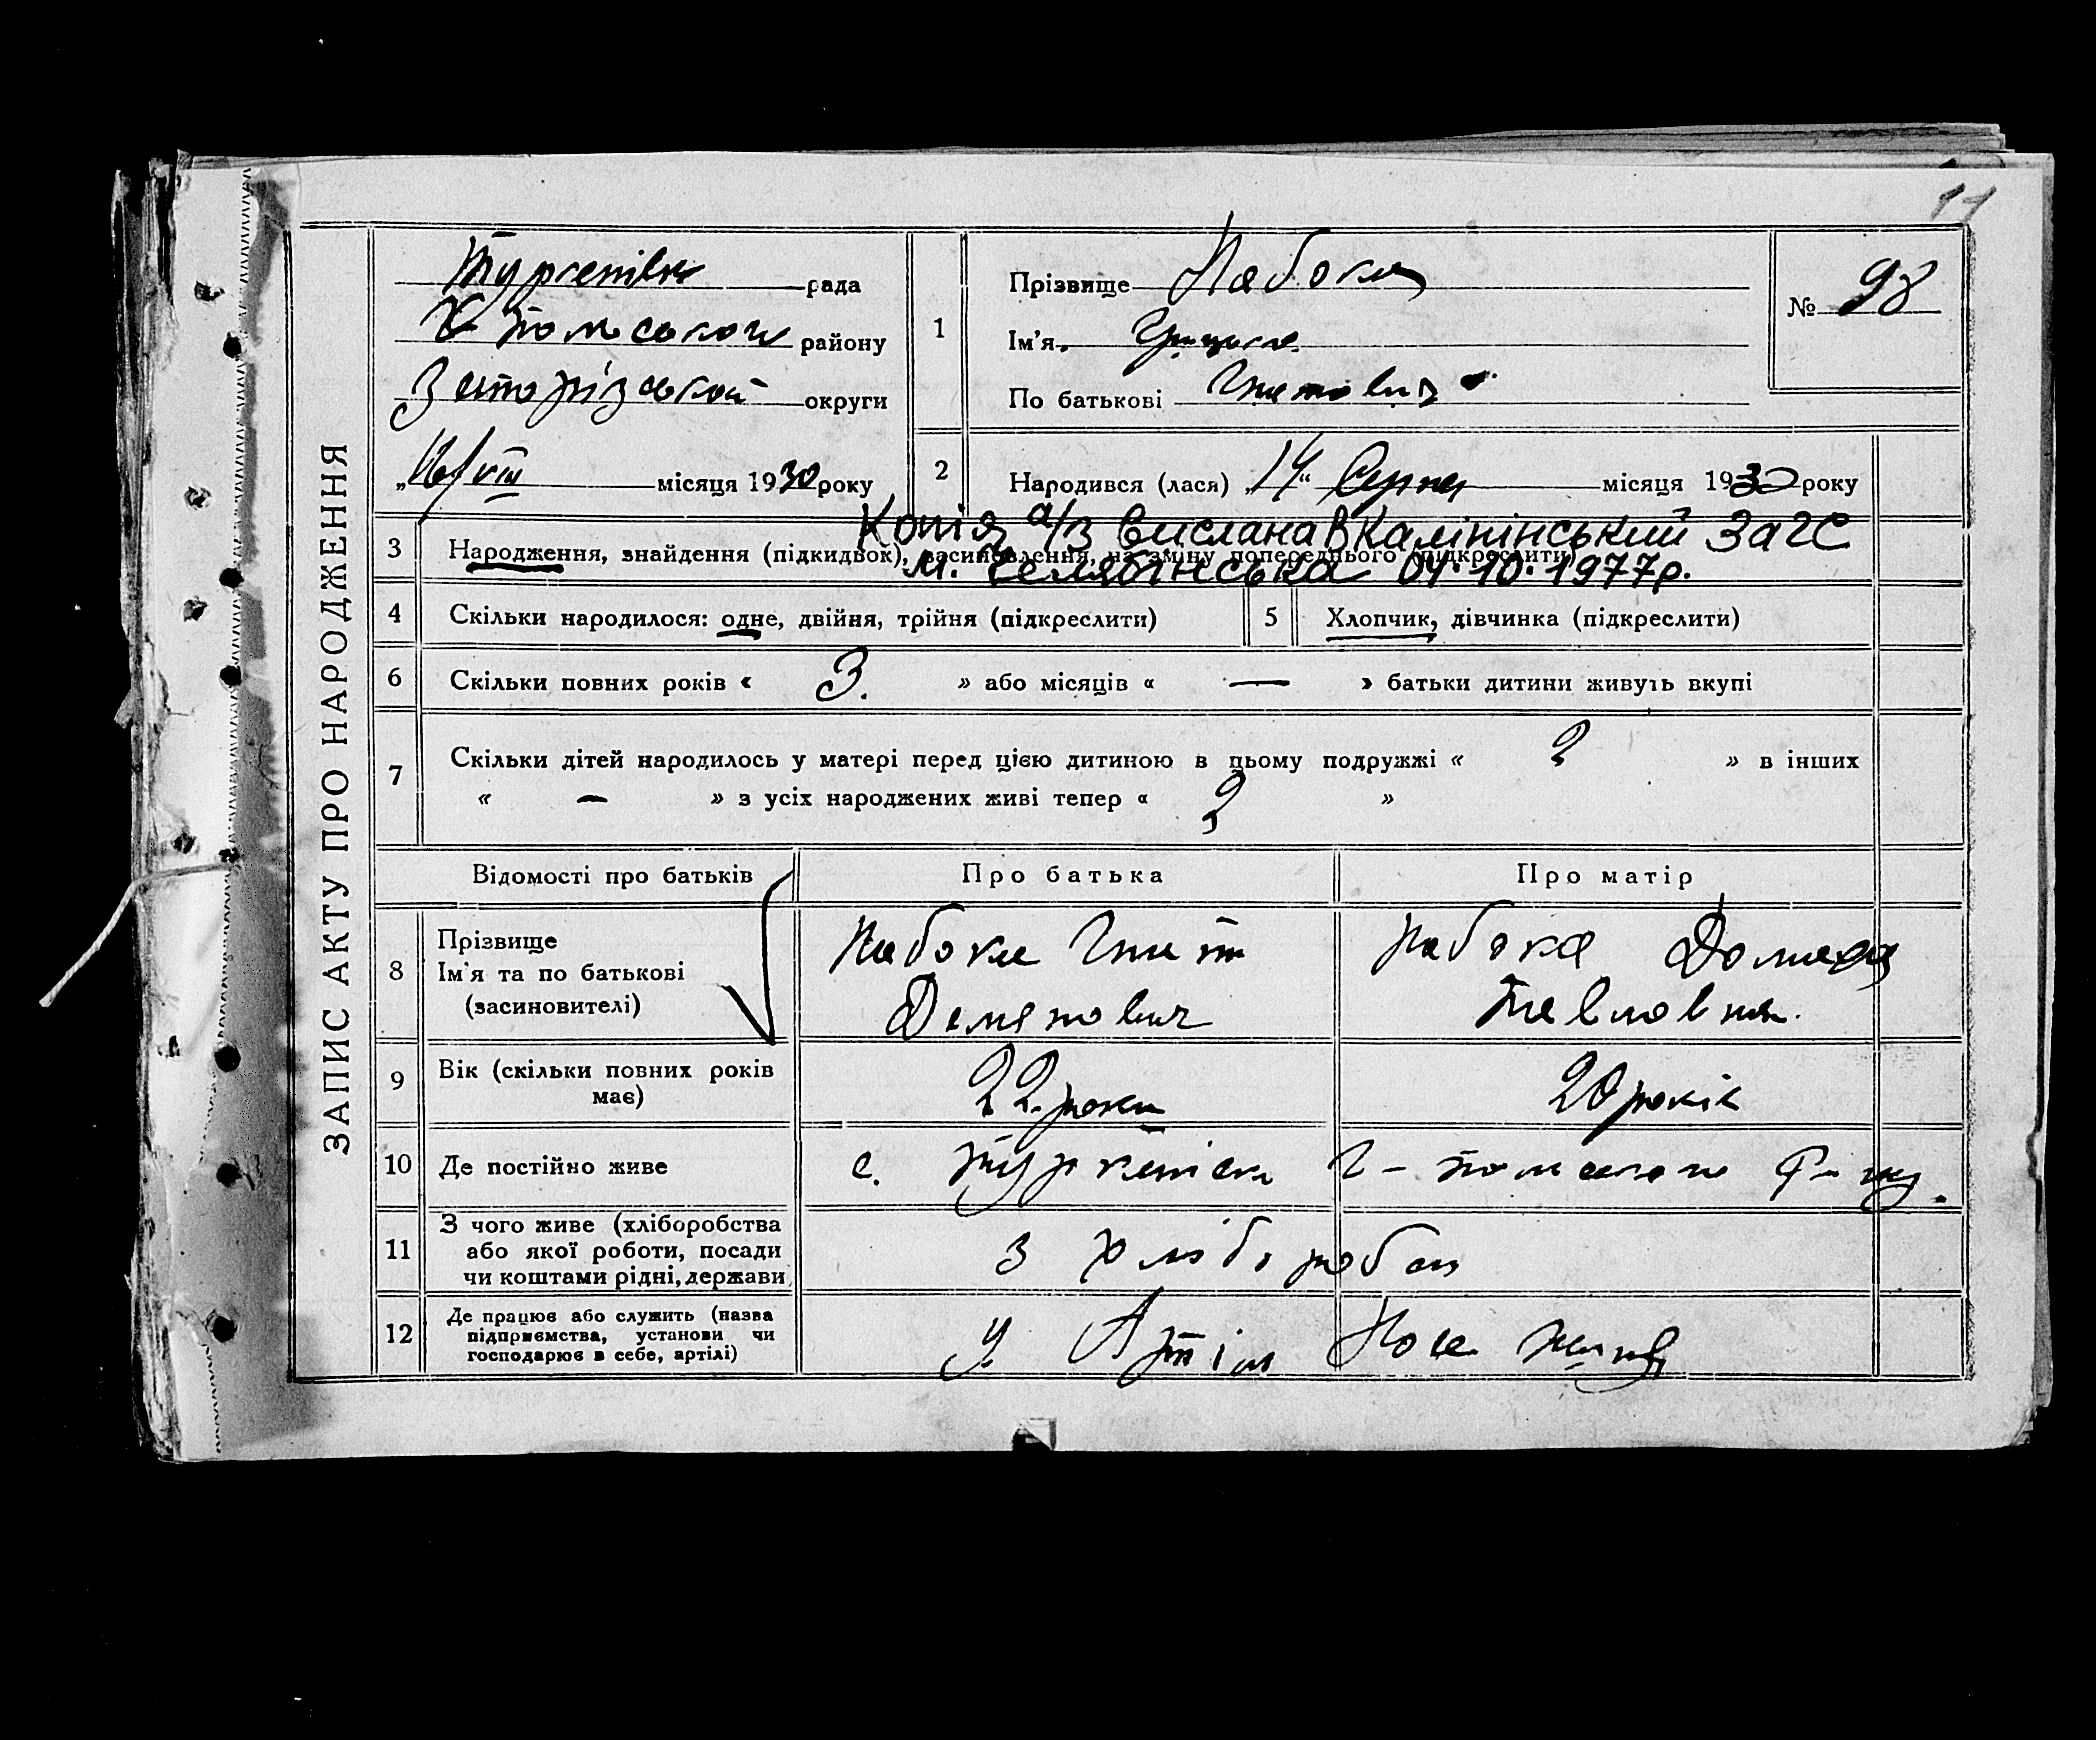 11
ЗАПИС АКТУ ПРО НАРОДЖЕННЯ
рада
району
Запорізької округи
16/VIII місяця 1930 року
1
Прізвище Набока
Ім'я Грицько
По батькові Гнатович
№ 98
2
Народився (лася) „14“ Серпня місяця 1930 року
Копія а/з вислана в Калінінський ЗАГС
м. Челябінська 04.10.1977р.
3
Народження, знайдення (підкидьок), засиновлення, на зміну попереднього (підкреслити)
4
Скільки народилося: одне, двійня, трійня (підкреслити)
5
Хлопчик, дівчинка (підкреслити)
6
Скільки повних років « 3. » або місяців « — » батьки дитини живуть вкупі
7
Скільки дітей народилось у матері перед цією дитиною в цьому подружжі « 2 » в інших
« — » з усіх народжених живі тепер « 2 »
Відомості про батьків
Про батька
Про матір
8
Прізвище
Ім'я та по батькові
(засиновителі)
Набока Гнат
Демянович
Набока Домаха
Павловна.
9
Вік (скільки повних років
має)
22 роки
20 років
10
Де постійно живе
с.
11
З чого живе (хліборобства
або якої роботи, посади
чи коштами рідні, держави
З хлібороб
12
Де працює або служить (назва
підприємства, установи чи
господарює в себе, артілі)
У Артіл Нове